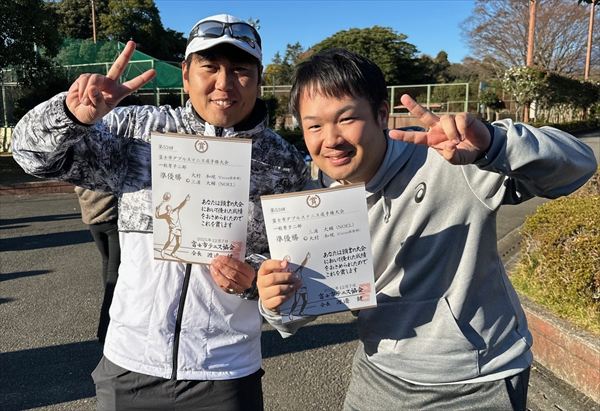 賞
第53回
富士市ダブルステニス選手権大会
一般男子二部
準優勝
大村 和暁
三浦 大輔 (NOEL)
あなたは頭書の大会
において優れた成績
をおさめられたので
これを賞します
富士市テニス協会
会長 渡邉
賞
第53回
富士市ダブルステニス選手権大会
一般男子二部
準優勝
三浦 大輔 (NOEL)
大村 和暁
あなたは頭書の大会
において優れた成績
をおさめられたので
これを賞します
富士市テニス協会
会長 渡邉